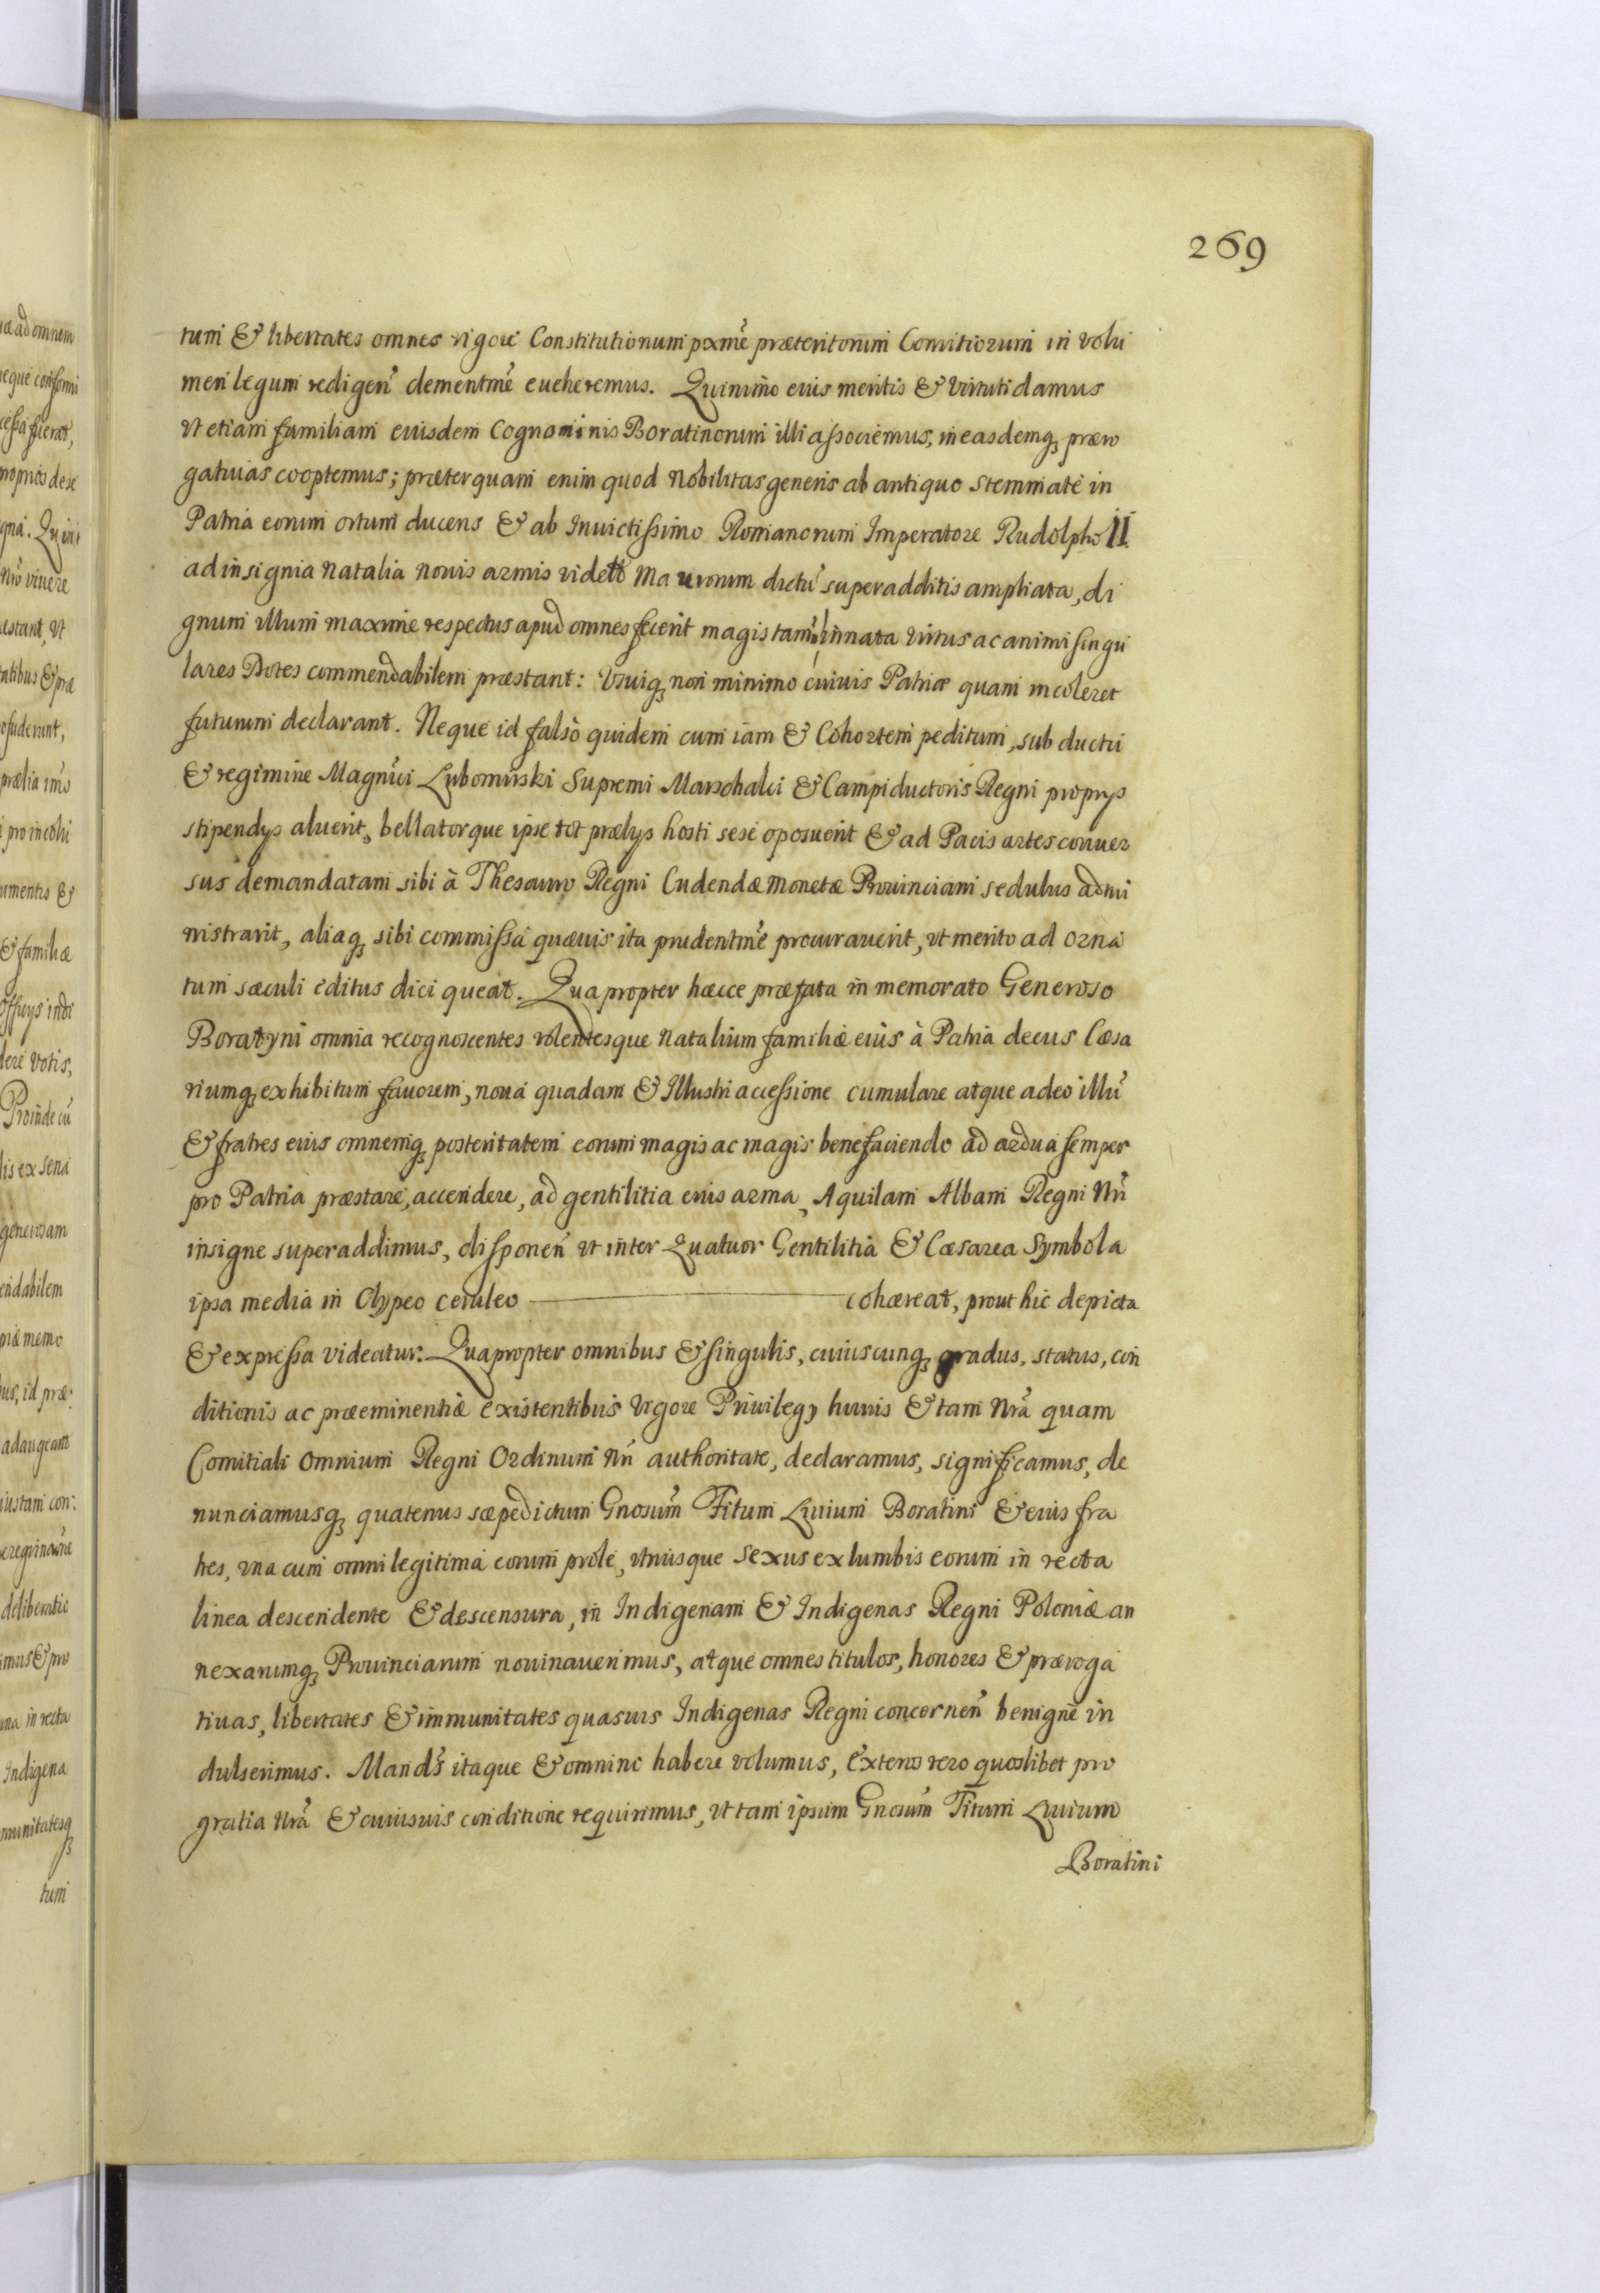 269
tum & libertates omnes vigore Constitutionum pxmẽ præteritorum Comitiorum in volu
men legum redigen̉ clementmẽ eueheremus. Quinimo eius meritis & virtuti damus
vt etiam familiam eiusdem Cognominis Boratinorum illi associemus, in easdemq; præro
gatiuas cooptemus; præterquam enim quod Nobilitas generis ab antiquo stemmate in
Patria eorum ortum ducens & ab Inuictissimo Romanorum Imperatore Rudolpho II.
ad insignia natalia nouis armis vidett Maurorum dictu̓ superadditis ampliata, di
gnum illum maxime respectus apud omnes fecerit magis tam̃ innata virtus ac animi singu
lares Dotes commendabilem præstant: Vsuiq; non minimo cuiuis Patriæ quam incoleret
futurum declarant. Neque id falso quidem cum iam & Cohortem peditum, sub ductu
& regimine Magn̓ci Lubomirski Supremi Marschalci & Campiductoris Regni proprys
stipendys aluerit, bellatorque ipse tot prælys hosti sese oposuerit & ad Pacis artes conuer
sus demandatam sibi à Thesauro Regni Cudendæ Monetæ Prouinciam sedulus admi
nistrarit, aliaq; sibi commissa quæuis ita prudentmẽ procurauerit, vt merito ad orna
tum sæculi editus dici queat. Quapropter hæcce præfata in memorato Generoso
Boratyni omnia recognoscentes volentesque Natalium familiæ eius à Patria decus Cæsa
riumq; exhibitum fauorem, noua quadam & Illustri accessione cumulare atque adeo illu̓
& fratres eius omnemq; posteritatem eorum magis ac magis benefaciendo ad ardua semper
pro Patria præstare, accendere, ad gentilitia eius arma, Aquilam Albam Regni Nri̓
insigne superaddimus, disponen̓ vt inter Quatuor Gentilitia & Cæsarea Symbola
ipsa media in Clypeo ceruleo cohæreat, prout hic depicta
& expressa videatur. Quapropter omnibus & singulis, cuiuscunq; gradus, status, con
ditionis ac præeminentiæ existentibus vigore Priuilegy huius & tam Nra̓ quam
Comitiali omnium Regni Ordinum Nri̓ authoritate, declaramus, significamus, de
nunciamusq; quatenus sæpedictum Gnosum̓ Titum Liuium Boratini & eius fra
tres, vna cum omni legitima eorum prole, vtriusque sexus ex lumbis eorum in recta
linea descendente & descensura, in Indigenam & Indigenas Regni Poloniæ an
nexarumq; Prouinciarum nominauerimus, atque omnes titulos, honores & præroga
tiuas, libertates & immunitates quasuis Indigenas Regni concernen̓ benignè in
dulserimus. Mand̓s itaque & omnino habere volumus, exteros vero quoslibet pro
gratia Nra̓ & cuiusuis conditione requirimus, vt tam ipsum Gnosum̓ Titum Liuium
Boratini